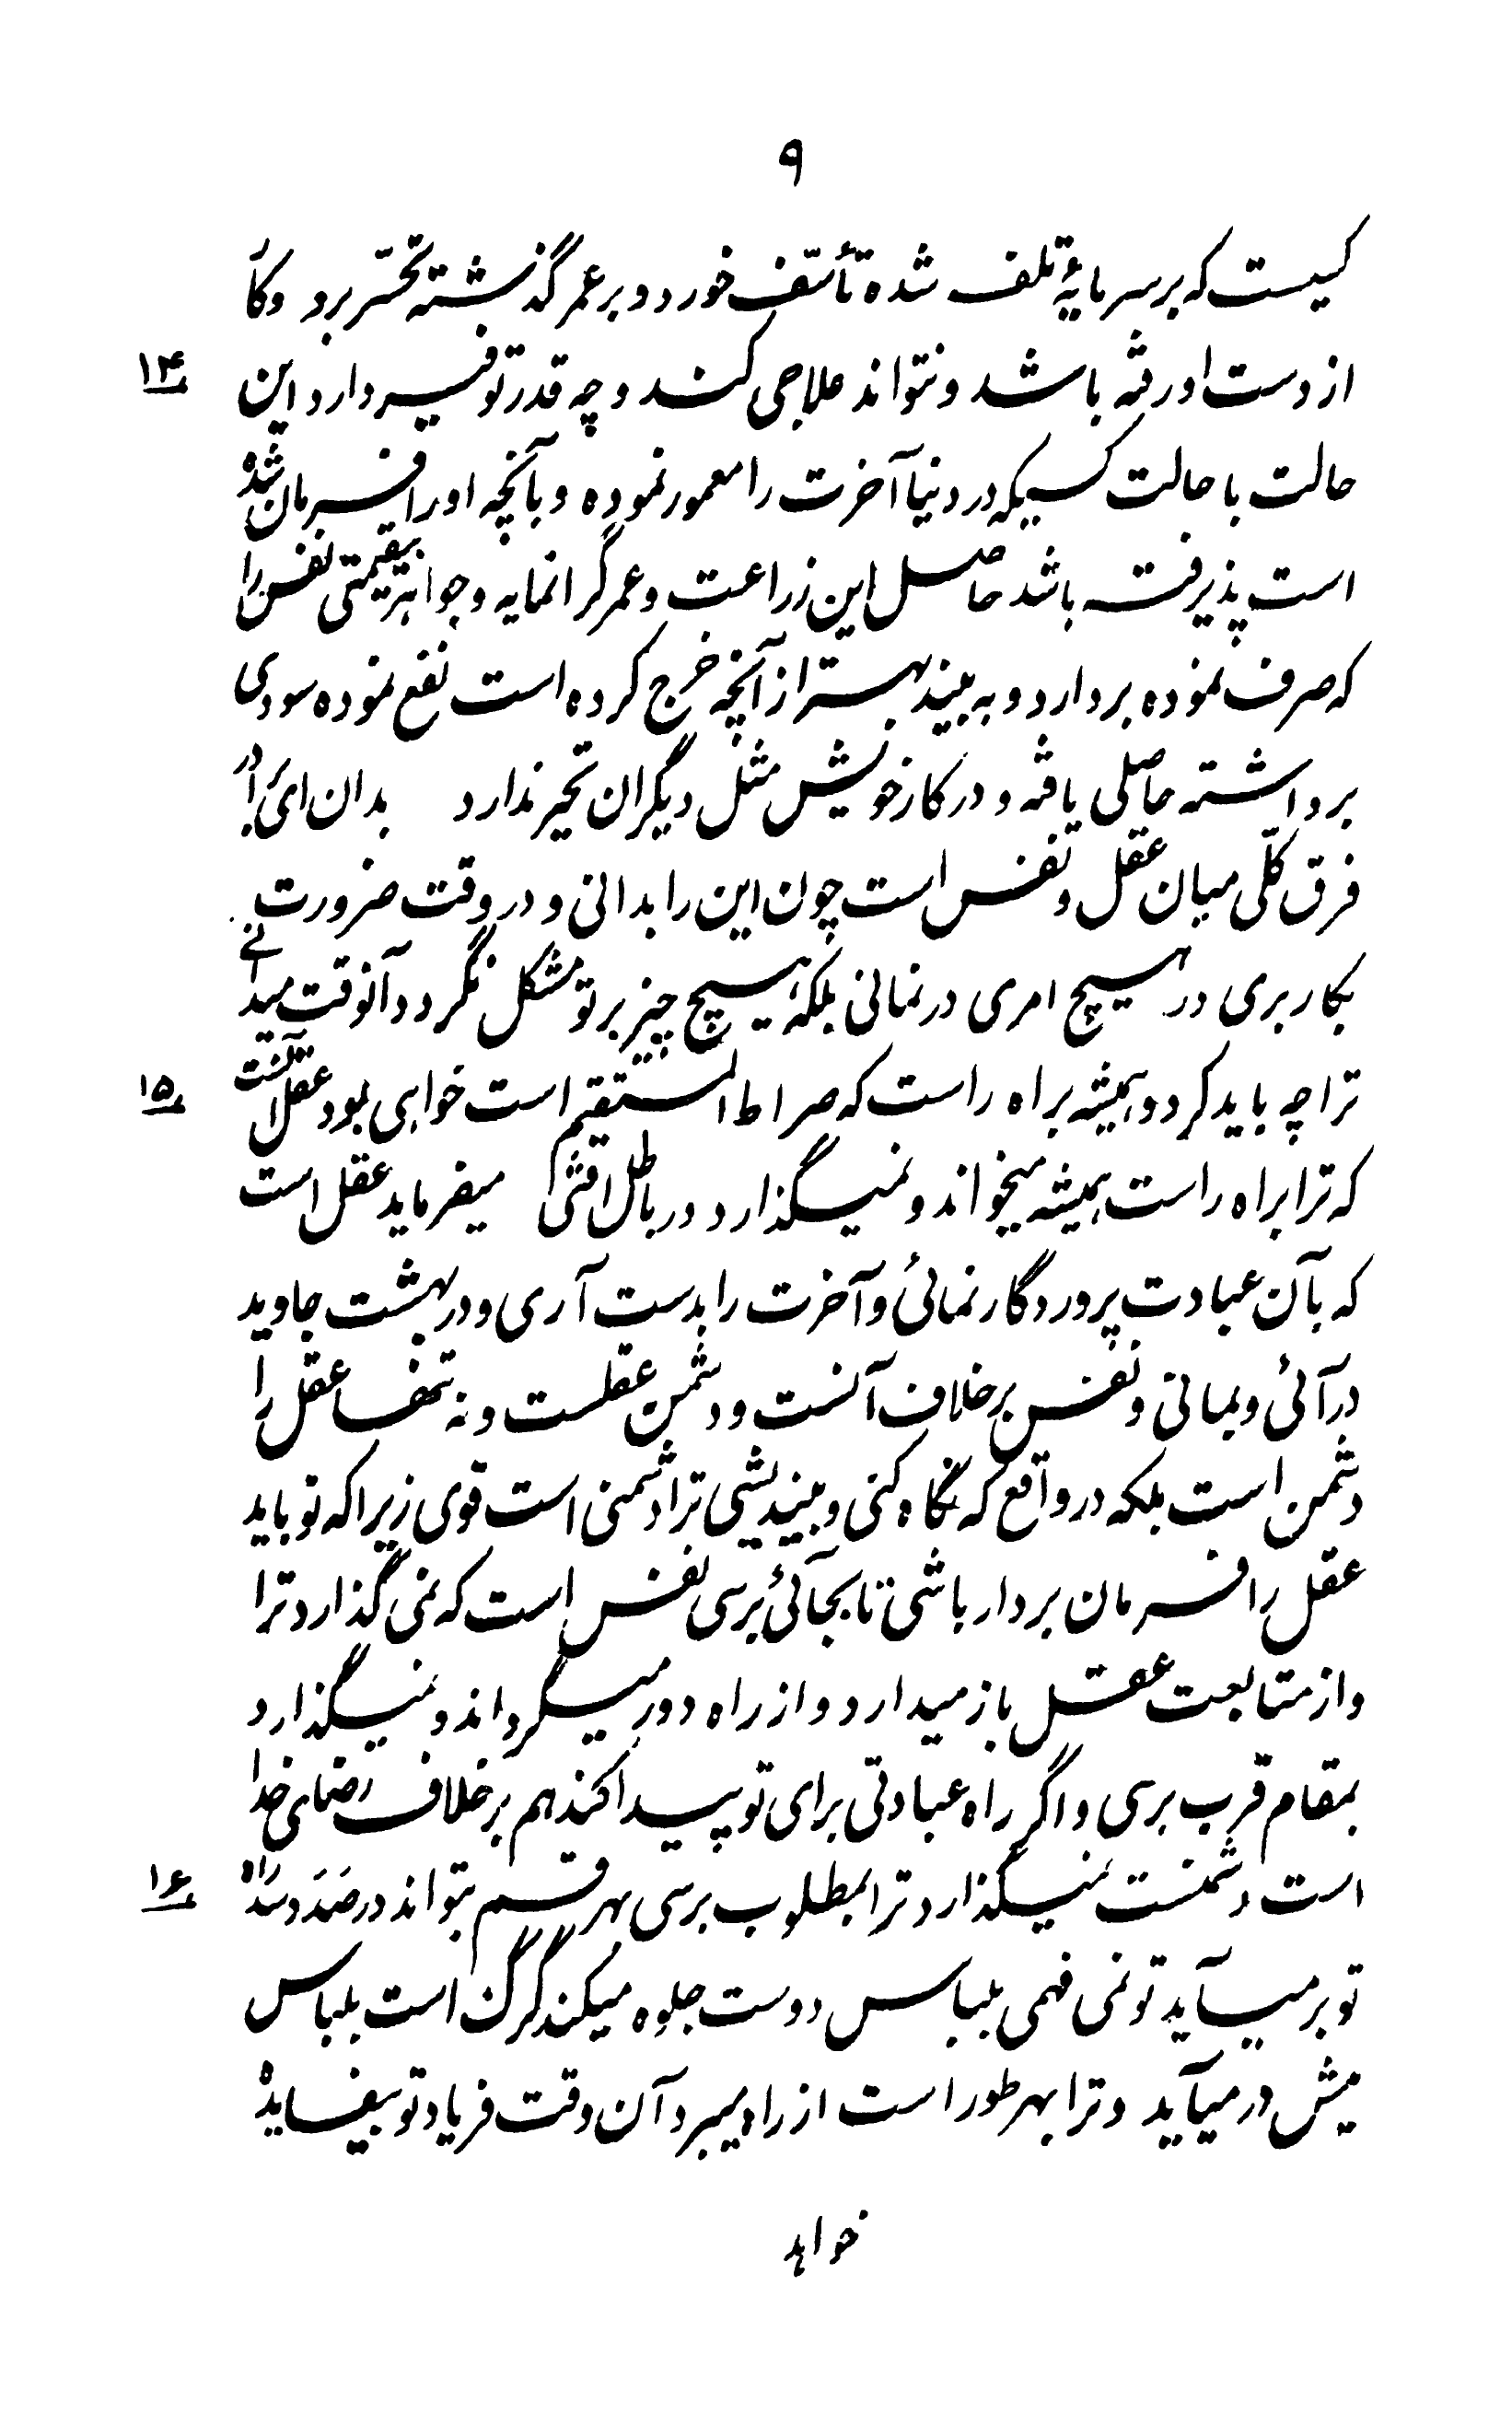 ۹
کیست که بر سرمایهٔ تلف شده تأسّف خورد و بر عمر گذشته تحسّر برد و کار
از دست او رفته باشد و نتواند علاجی کند و چه قدر توفیر دارد این
۱۴
حالت با حالت کسیکه در دنیا آخرت را معمور نموده و بآنچه او را فرمان شده
است پذیرفته باشد حاصل این زراعت و عمر گرانمایه و جواهر بیقیمتی نفس را
که صرف نموده بردارد و به بیند بهتر از آنچه خرج کرده است نفع نموده سودی
برداشته حاصلی یافته و در کار خویش مثل دیگران تحیر ندارد بدان ای برادر
فرق کلّی میان عقل و نفس است چون این را بدانی و در وقت ضرورت
بکار بری در هیچ امری در نمانی بلکه هیچ چیز بر تو مشکل نگردد آنوقت میدانی
ترا چه باید کرد و همیشه براه راست که صراط المستقیم است خواهی بود عقل آنست
۱۵
که ترا براه راست همیشه میخواند و نمیگذارد در باطل افتی میفرماید عقل است
که بآن عبادت پروردگار نمائی و آخرت را بدست آری و در بهشت جاوید
درآئی و بمانی و نفس بر خلاف آنست و دشمن عقلست و نه تنها عقل را
دشمن است بلکه در واقع که نگاه کنی و بیندیشی ترا دشمنی است قوی زیرا که تو باید
عقل را فرمان بردار باشی تا بجائی برسی نفس است که نمی گذارد ترا
و از متابعت عقل باز میدارد و از راه دور میگرداند و نمیگذارد
بمقام قرب برسی و اگر راه عبادتی برای تو پیدا کند هم بر خلاف رضای خدا
است دشمنست نمیگذارد ترا بمطلوب برسی بهر قسم بتواند در صدد سدّ راه
۱۶
تو بر میآید تو نمی فهمی بلباس دوست جلوه میکند گرگ است بلباس
میش در میآید و ترا بهر طور است از راه میبرد آن وقت فریاد تو بیفایده
خواهد